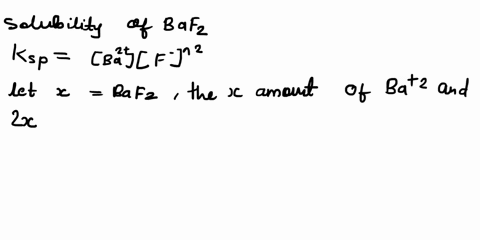 Solubility of BaF₂
Ksp = [Ba²⁺][F⁻]^n2
let x = BaF₂, the x amount of Ba⁺² and
2x